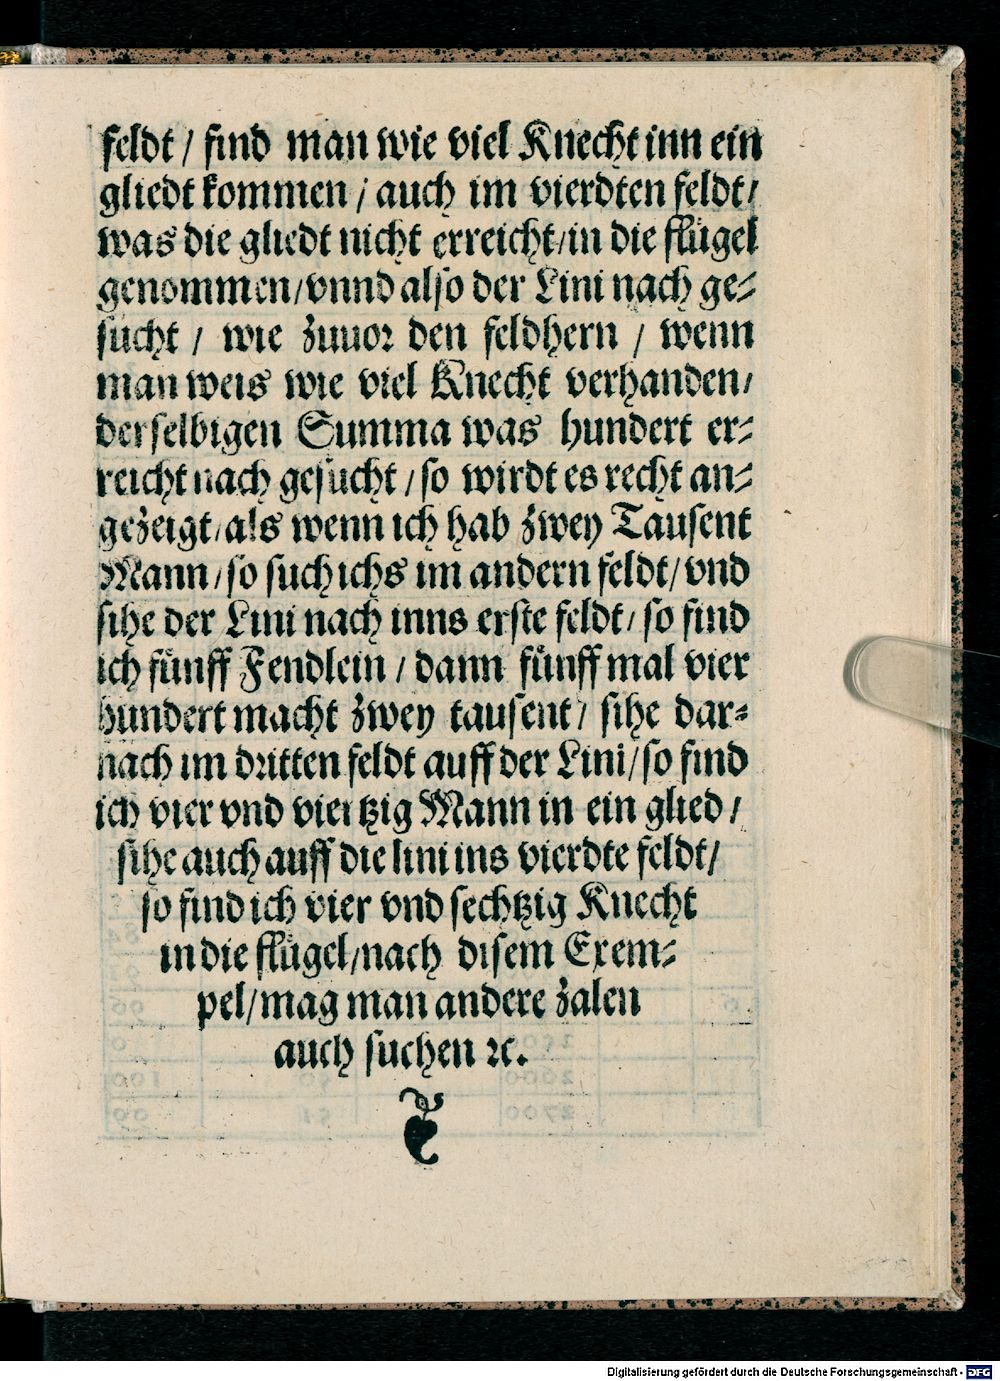 feldt / find man wie viel Knecht inn ein
gliedt kommen / auch im vierdten feldt /
was die gliedt nicht erreicht / in die flügel
genommen / vnnd also der Lini nach ge⸗
sucht / wie zuuor den feldhern / wenn
man weis wie viel Knecht verhanden /
derselbigen Summa was hundert er⸗
reicht nach gesucht / so wirdt es recht an⸗
gezeigt / als wenn ich hab zwey Tausent
Mann / so such ichs im andern feldt / vnd
sihe der Lini nach inns erste feldt / so find
ich fünff Fendlein / dann fünff mal vier
hundert macht zwey tausent / sihe dar⸗
nach im dritten feldt auff der Lini / so find
ich vier vnd viertzig Mann in ein glied /
sihe auch auff die lini ins vierdte feldt /
so find ich vier vnd sechtzig Knecht
in die flügel / nach disem Exem⸗
pel / mag man andere zalen
auch suchen ꝛc.
Digitalisierung gefördert durch die Deutsche Forschungsgemeinschaft - DFG